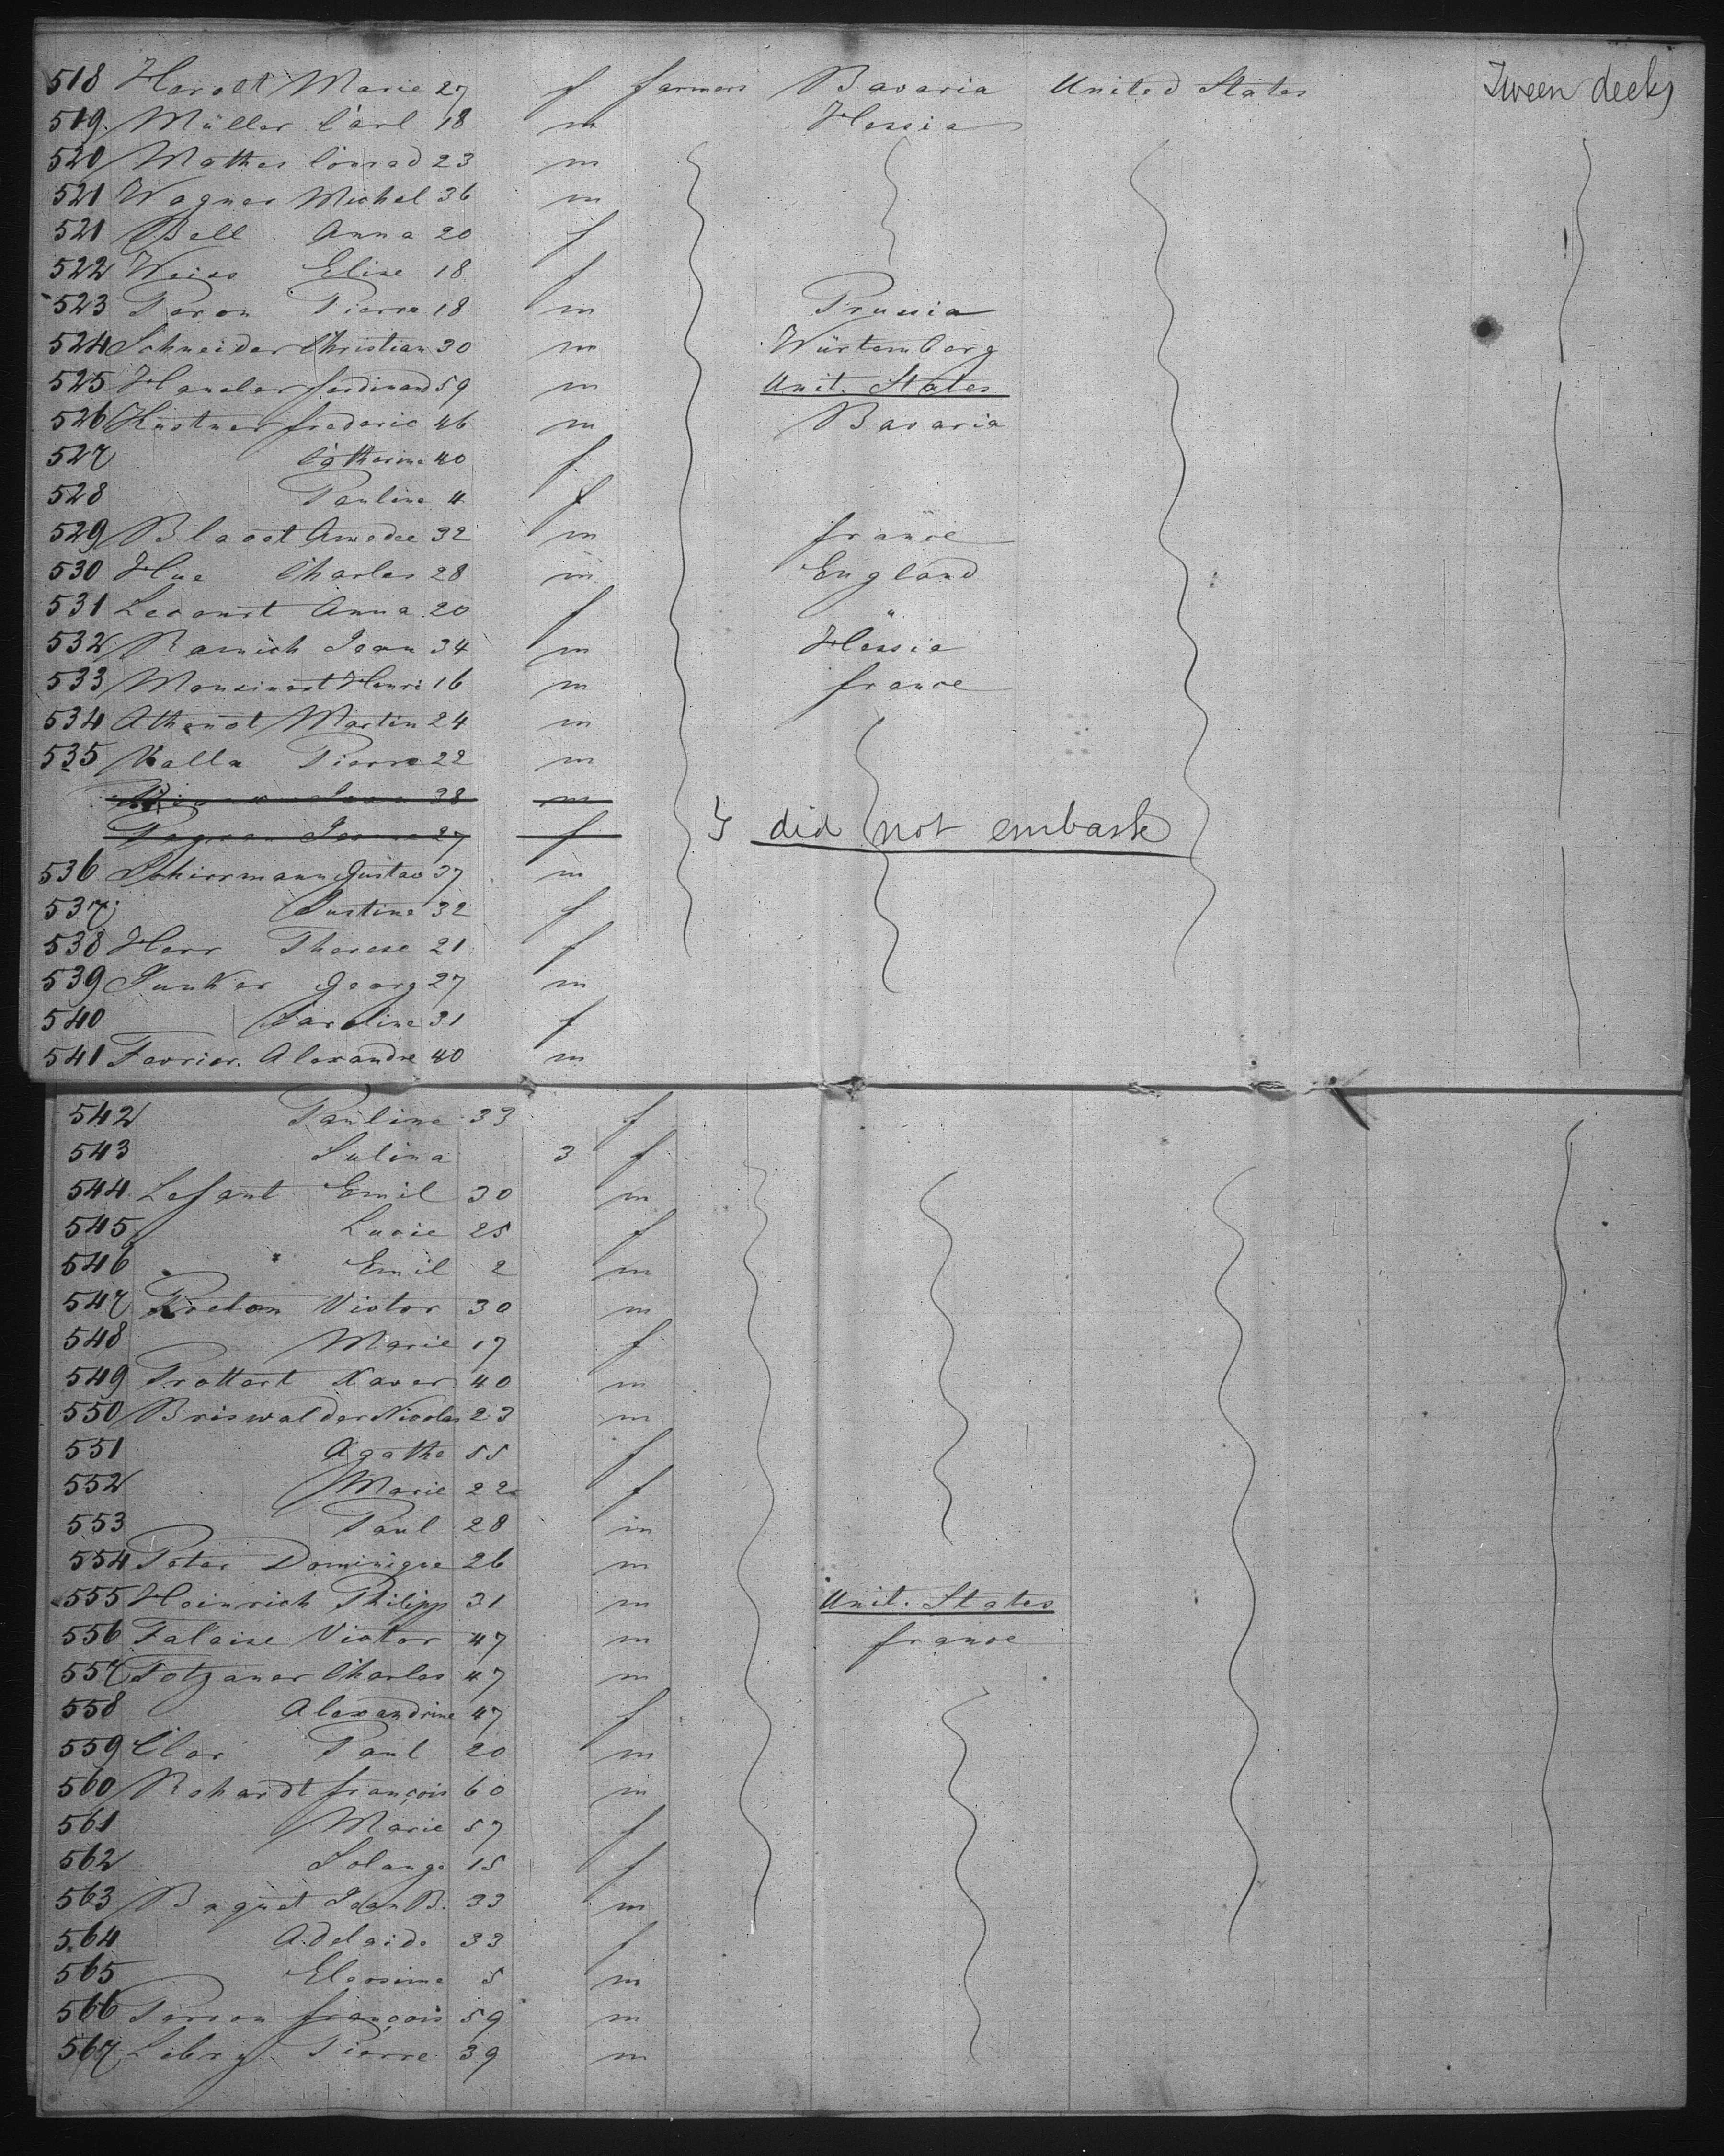 518 Haroldt Marie 27 f farmers Bavaria United States Tween decks
519 Müller Carl 18 m Hessia
520 Mather Conrad 23 m
521 Wagner Michel 36 m
521 Bell Anna 20 f
522 Weiss Elise 18 f
523 Peron Pierre 18 m Prussia
524 Schneider Christian 30 m Würtemberg
525 Ferdinand 59 m Unit. States
526 Hüstner frederic 46 m Bavaria
527 Catherine 40 f
528 Pauline 4 f
529 Amedee 32 m france
530 Hue Charles 28 m England
531 Leconst Anna 20 f "
532 Ramich Jean 34 m Hessia
533 Henri 16 m france
534 Athenot Martin 24 m
535 Kalla Pierre 22 m
38 m
27 f did not embark
536 Schirrmann Gustav 37 m
537 Justine 32 f
538 Herr Therese 21 f
539 Junker Georg 27 m
540 Caroline 31 f
541 Fevrier Alexandre 40 m
542 Pauline 33 f
543 Julina 3 f
544 Lefant Emil 30 m
545 Lucie 25 f
546 Emil 2 m
547 Victor 30 m
548 Marie 17 f
549 Prottart Xaver 40 m
550 Briswalder Nicolas 23 m
551 Agathe 55 f
552 Marie 22 f
553 Paul 28 m
554 Peter Dominique 26 m
555 Heinrich Philipp 31 m Unit. States
556 Falaise Victor 47 m france
557 Totzauer Charles 47 m
558 Alexandrine 47 f
559 Clar Paul 20 m
560 Rohardt françois 60 m
561 Marie 57 f
562 Solange 15 f
563 Baquet Jean B. 33 m
564 Adelaide 33 f
565 5 m
566 Perron françois 59 m
567 Lebry Pierre 39 m